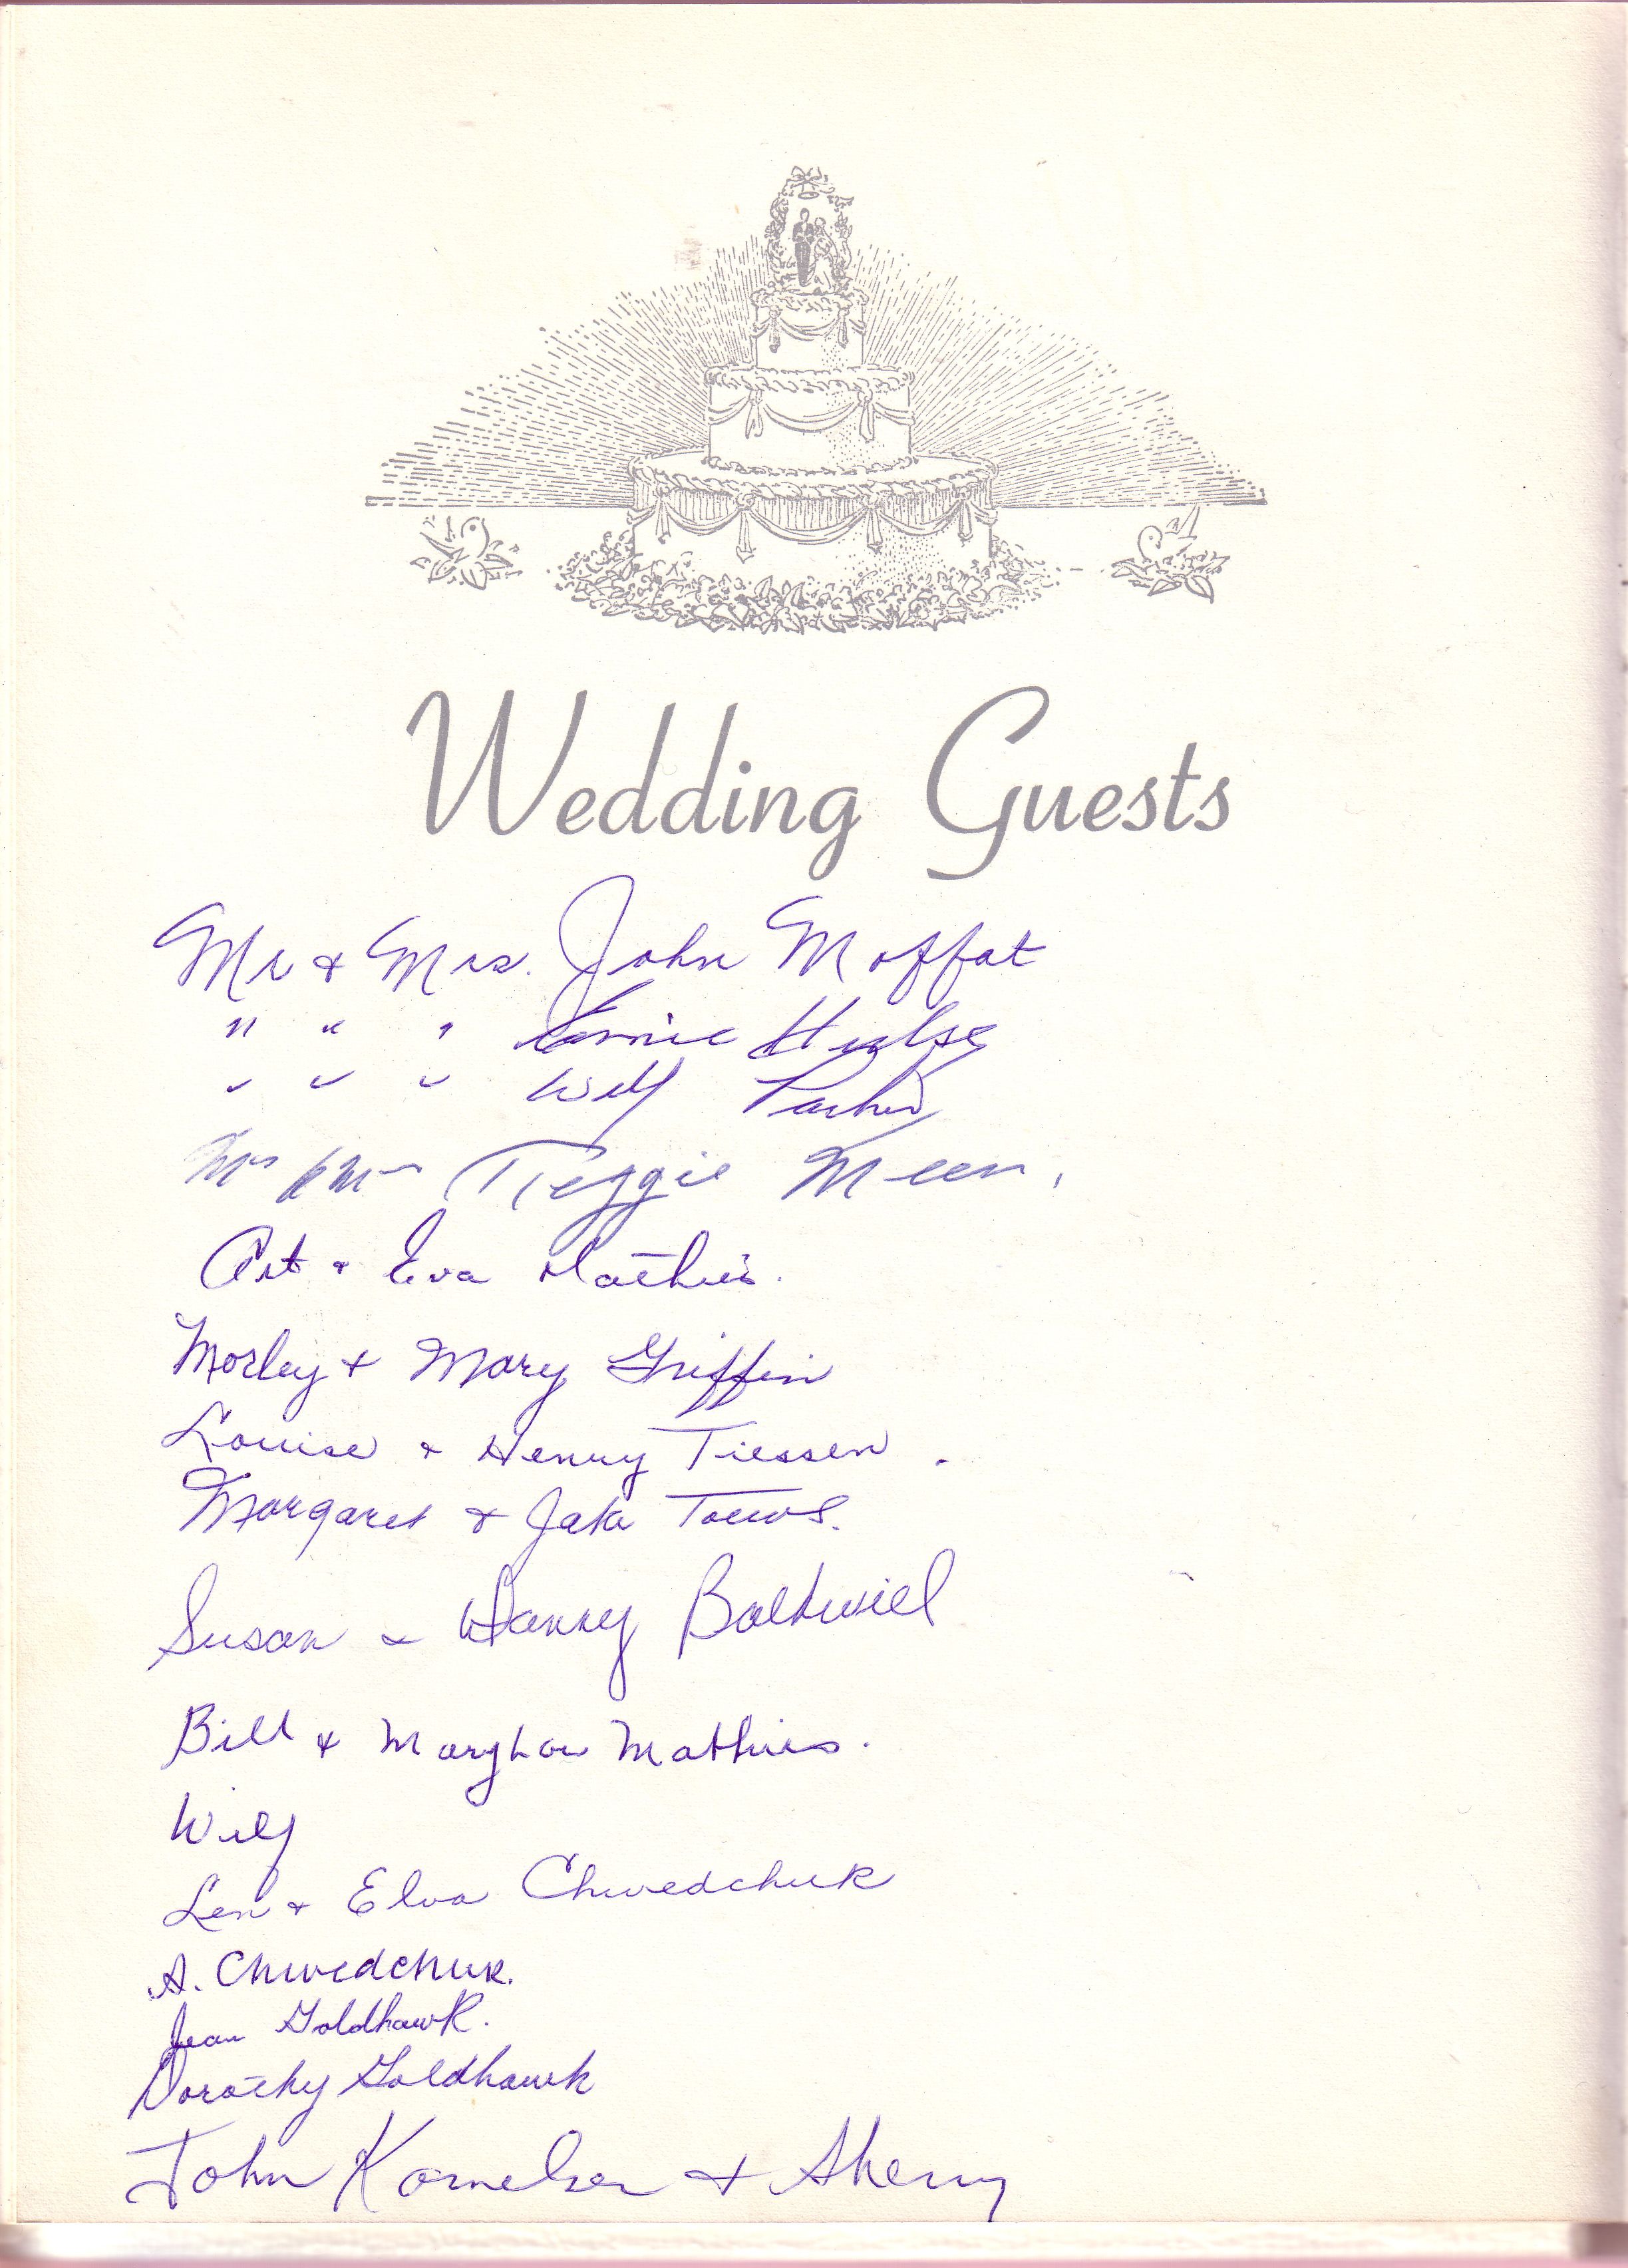 Wedding Guests
Mr & Mrs. John Moffat
" " " Ernie Hulse
" " " Wilf Parker
Mr & Mrs Reggie Meen.
Art & Eva Mathies.
Morley & Mary Griffin
Louise & Henry Tiessen.
Margaret & Jake Toews.
Susan &
Bill & Mary Lou Mathies.
Wilf
Len & Elva Chwedchuk
A. Chwedchuk.
Jean Goldhawk.
Dorothy Goldhawk
John Kornelsen & Sherry